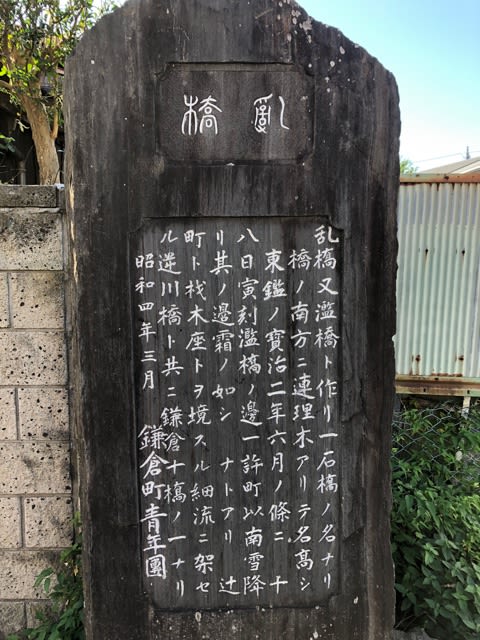 亂橋
乱橋又濫橋ト作リ一石橋ノ名ナリ
橋ノ南方ニ連理木アリテ名髙シ
東鑑ノ寳治二年六月ノ條ニ十
八日寅刻濫橋ノ邊一許町以南雪降
リ其ノ邊霜ノ如シ ナトアリ 辻
町ト材木座トヲ境スル細流ニ架セ
ル逆川橋ト共ニ鎌倉十橋ノ一ナリ
昭和四年三月 鎌倉町青年團